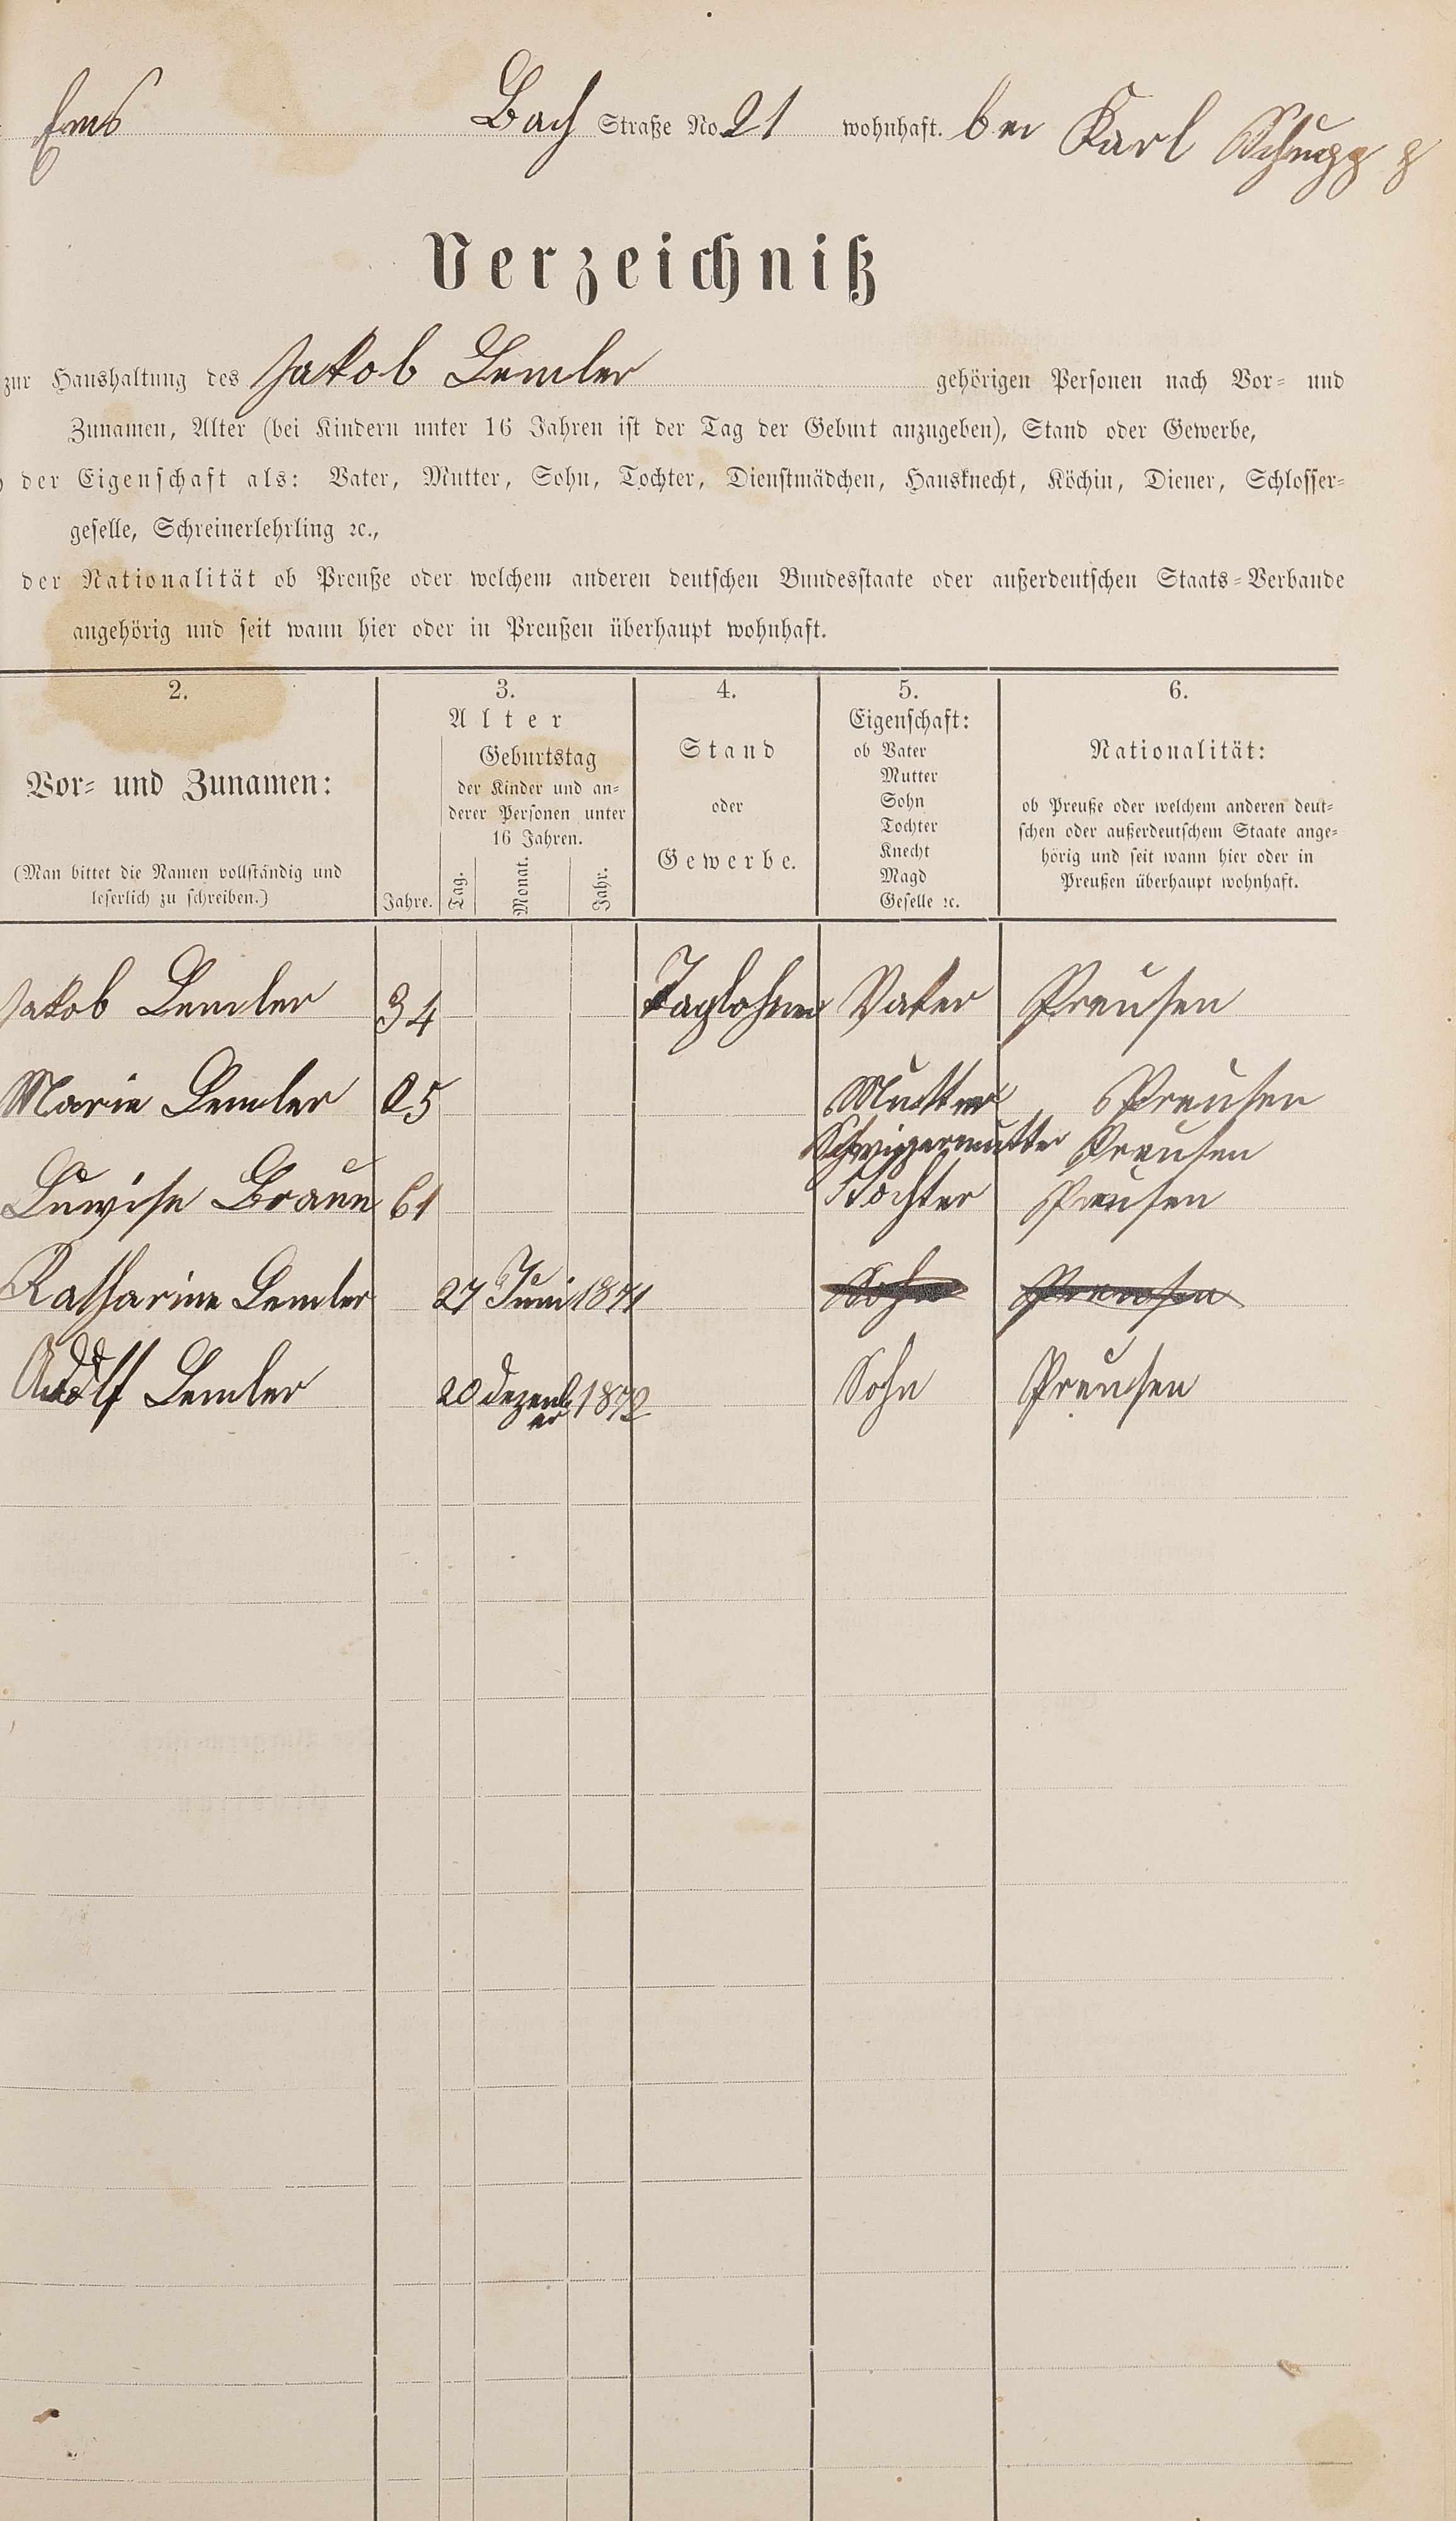 Ems Bach Straße No. 21 wohnhaft. bei Karl Schupp
Verzeichniß
zur Haushaltung des Jakob Lemler gehörigen Personen nach Vor- und
Zunamen, Alter (bei Kindern unter 16 Jahren ist der Tag der Geburt anzugeben), Stand oder Gewerbe,
der Eigenschaft als: Vater, Mutter, Sohn, Tochter, Dienstmädchen, Hausknecht, Köchin, Diener, Schlosser-
geselle, Schreinerlehrling ꝛc.,
der Nationalität ob Preuße oder welchem anderen deutschen Bundesstaate oder außerdeutschen Staats-Verbande
angehörig und seit wann hier oder in Preußen überhaupt wohnhaft.
2.
Vor- und Zunamen:
(Man bittet die Namen vollständig und
leserlich zu schreiben.)
3.
Alter
Jahre.
Geburtstag
der Kinder und an-
derer Personen unter
16 Jahren.
Tag.
Monat.
Jahr.
4.
Stand
oder
Gewerbe.
5.
Eigenschaft:
ob Vater
Mutter
Sohn
Tochter
Knecht
Magd
Geselle ꝛc.
6.
Nationalität:
ob Preuße oder welchem anderen deut-
schen oder außerdeutschem Staate ange-
hörig und seit wann hier oder in
Preußen überhaupt wohnhaft.
Jakob Lemler 34 Taglohner Vater Preusen
Marie Lemler 25 Mutter Preusen
Schwigermutter Preusen
Luwise Braun 61 Tochter Preusen
Katharine Lemler 27 Juni 1871 Sohn Preusen
Adolf Lemler 20 dezember 1872 Sohn Preusen